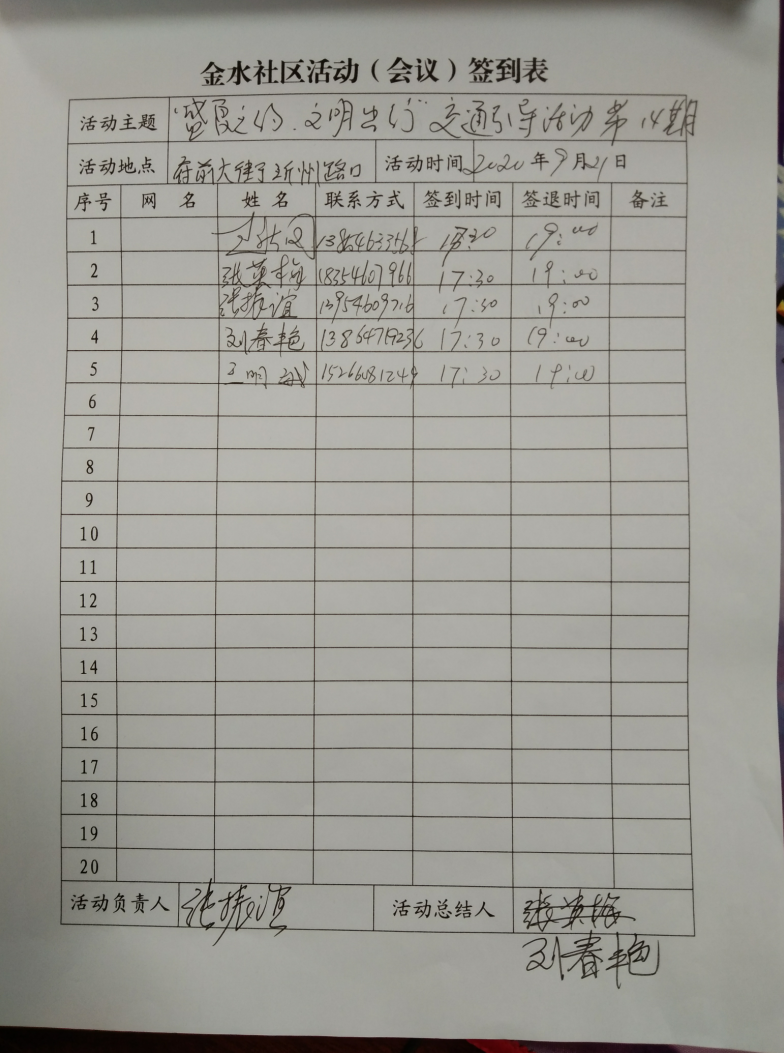 金水社区活动（会议）签到表
活动主题 "盛夏之约.文明出行"交通引导活动第14期
活动地点 府前大街于沂州路口 活动时间 2020年9月21日
序号 网 名 姓 名 联系方式 签到时间 签退时间 备注
1 19:00
2 张英梅 18354607966 17:30 19:00
3 张振谊 13954609716 17:30 19:00
4 刘春艳 13864719236 17:30 19:00
5 王明 15266081249 17:30 19:00
6
7
8
9
10
11
12
13
14
15
16
17
18
19
20
活动负责人 张振谊 活动总结人 张英梅
刘春艳